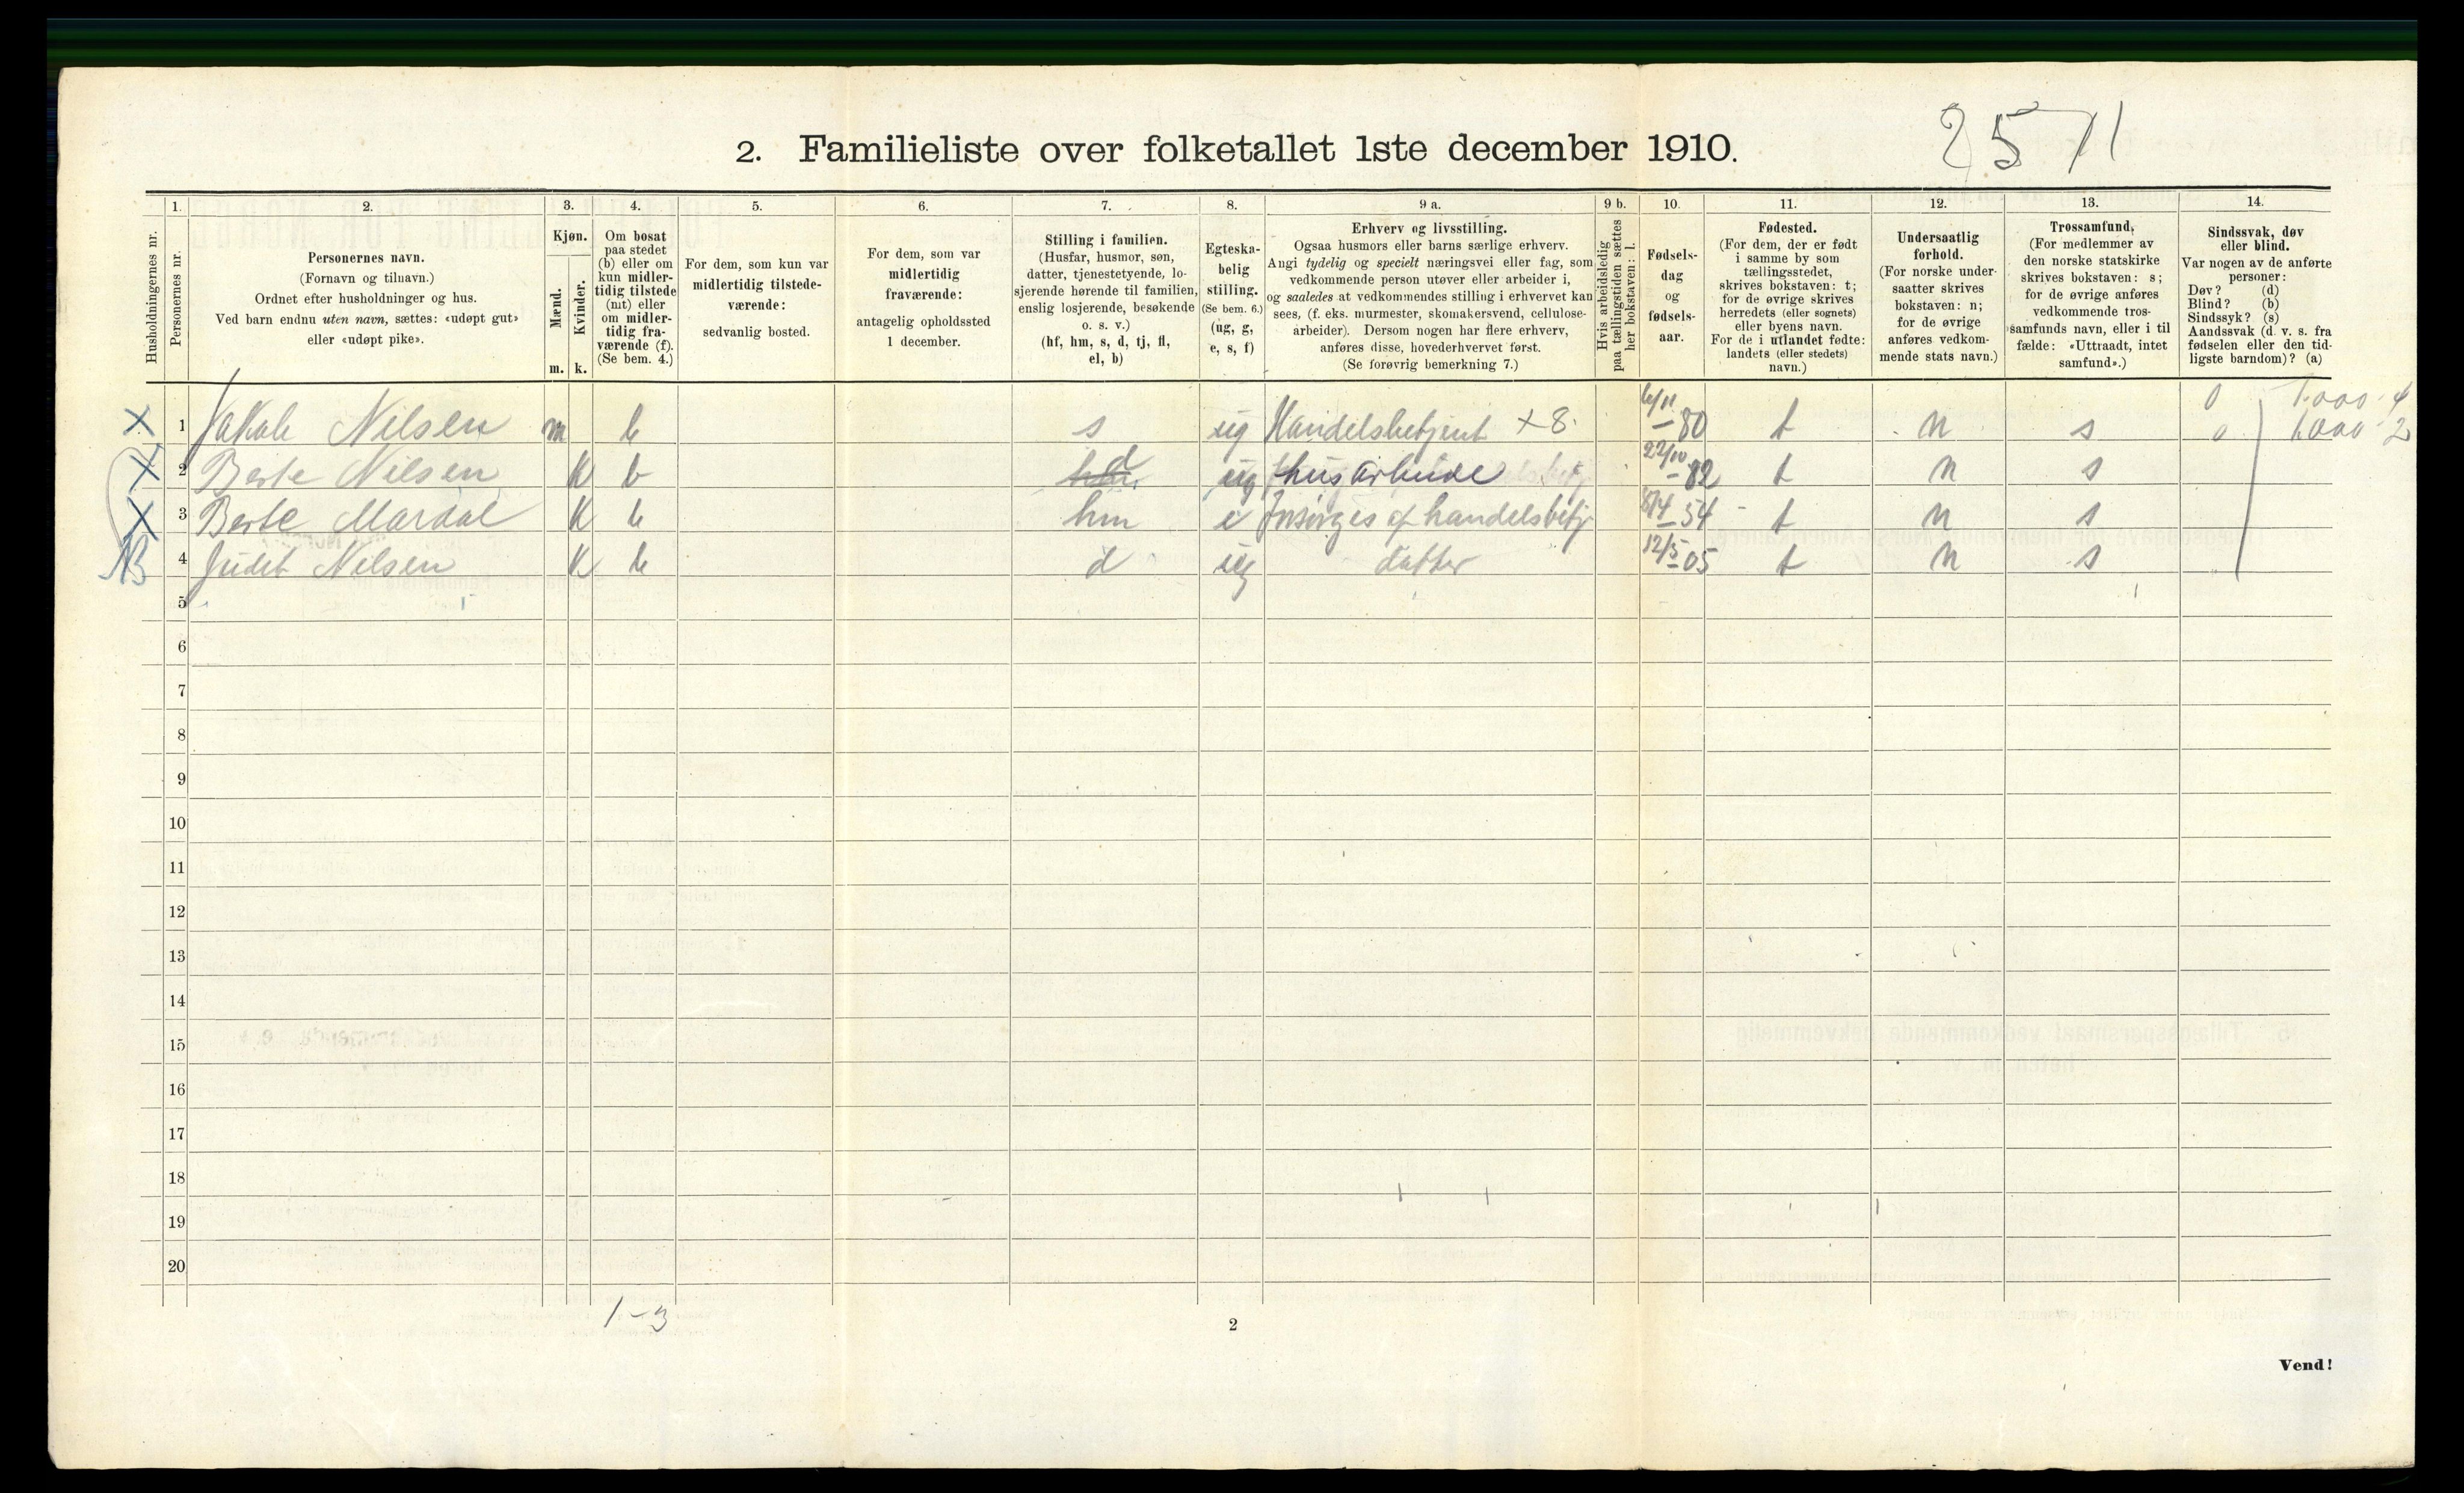 2571
2. Familieliste over folketallet 1ste december 1910.
Husholdningernes nr.
1. Personernes nr.
2. Personernes navn.
(Fornavn og tilnavn.)
Ordnet efter husholdninger og hus.
Ved barn endnu uten navn, sættes: «udøpt gut»
eller «udøpt pike».
3. Kjøn.
Mænd. m.
Kvinder. k.
4. Om bosat
paa stedet
(b) eller om
kun midler-
tidig tilstede
(mt) eller
om midler-
tidig fra-
værende (f).
(Se bem. 4.)
5. For dem, som kun var
midlertidig tilstede-
værende:
sedvanlig bosted.
6. For dem, som var
midlertidig
fraværende:
antagelig opholdssted
1 december.
7. Stilling i familien.
(Husfar, husmor, søn,
datter, tjenestetyende, lo-
sjerende hørende til familien,
enslig losjerende, besøkende
o. s. v.)
(hf, hm, s, d, tj, fl,
el, b)
8. Egteska-
belig
stilling.
(Se bem. 6.)
(ug, g,
e, s, f)
9 a. Erhverv og livsstilling.
Ogsaa husmors eller barns særlige erhverv.
Angi tydelig og specielt næringsvei eller fag, som
vedkommende person utøver eller arbeider i,
og saaledes at vedkommendes stilling i erhvervet kan
sees, (f. eks. murmester, skomakersvend, cellulose-
arbeider). Dersom nogen har flere erhverv,
anføres disse, hovederhvervet først.
(Se forøvrig bemerkning 7.)
9 b. Hvis arbeidsledig
paa tællingstiden sættes
her bokstaven: l.
10. Fødsels-
dag
og
fødsels-
aar.
11. Fødested.
(For dem, der er født
i samme by som
tællingsstedet,
skrives bokstaven: t;
for de øvrige skrives
herredets (eller sognets)
eller byens navn.
For de i utlandet fødte:
landets (eller stedets)
navn.)
12. Undersaatlig
forhold.
(For norske under-
saatter skrives
bokstaven: n;
for de øvrige
anføres vedkom-
mende stats navn.)
13. Trossamfund.
(For medlemmer av
den norske statskirke
skrives bokstaven: s;
for de øvrige anføres
vedkommende tros-
samfunds navn, eller i til
fælde: «Uttraadt, intet
samfund».)
14. Sindssvak, døv
eller blind.
Var nogen av de anførte
personer:
Døv? (d)
Blind? (b)
Sindssyk? (s)
Aandssvak (d. v. s. fra
fødselen eller den tid-
ligste barndom)? (a)
0 1.000 - 4
X 1 Jakob Nilsen m b s ug Handelsbetjent + 8. 6/11 - 80 t n s 0 1.000 2
X 2 Berte Nilsen K b d ug husarbeide 22/10 - 82 t n s
X 3 Berte Mardal K b hm e Forsørges af handelsbetj 8/4 - 54 t n s
NB 4 Judit Nilsen K b d ug datter 12/5 - 05 t n s
5
6
7
8
9
10
11
12
13
14
15
16
17
18
19
20
1-3
2
Vend!